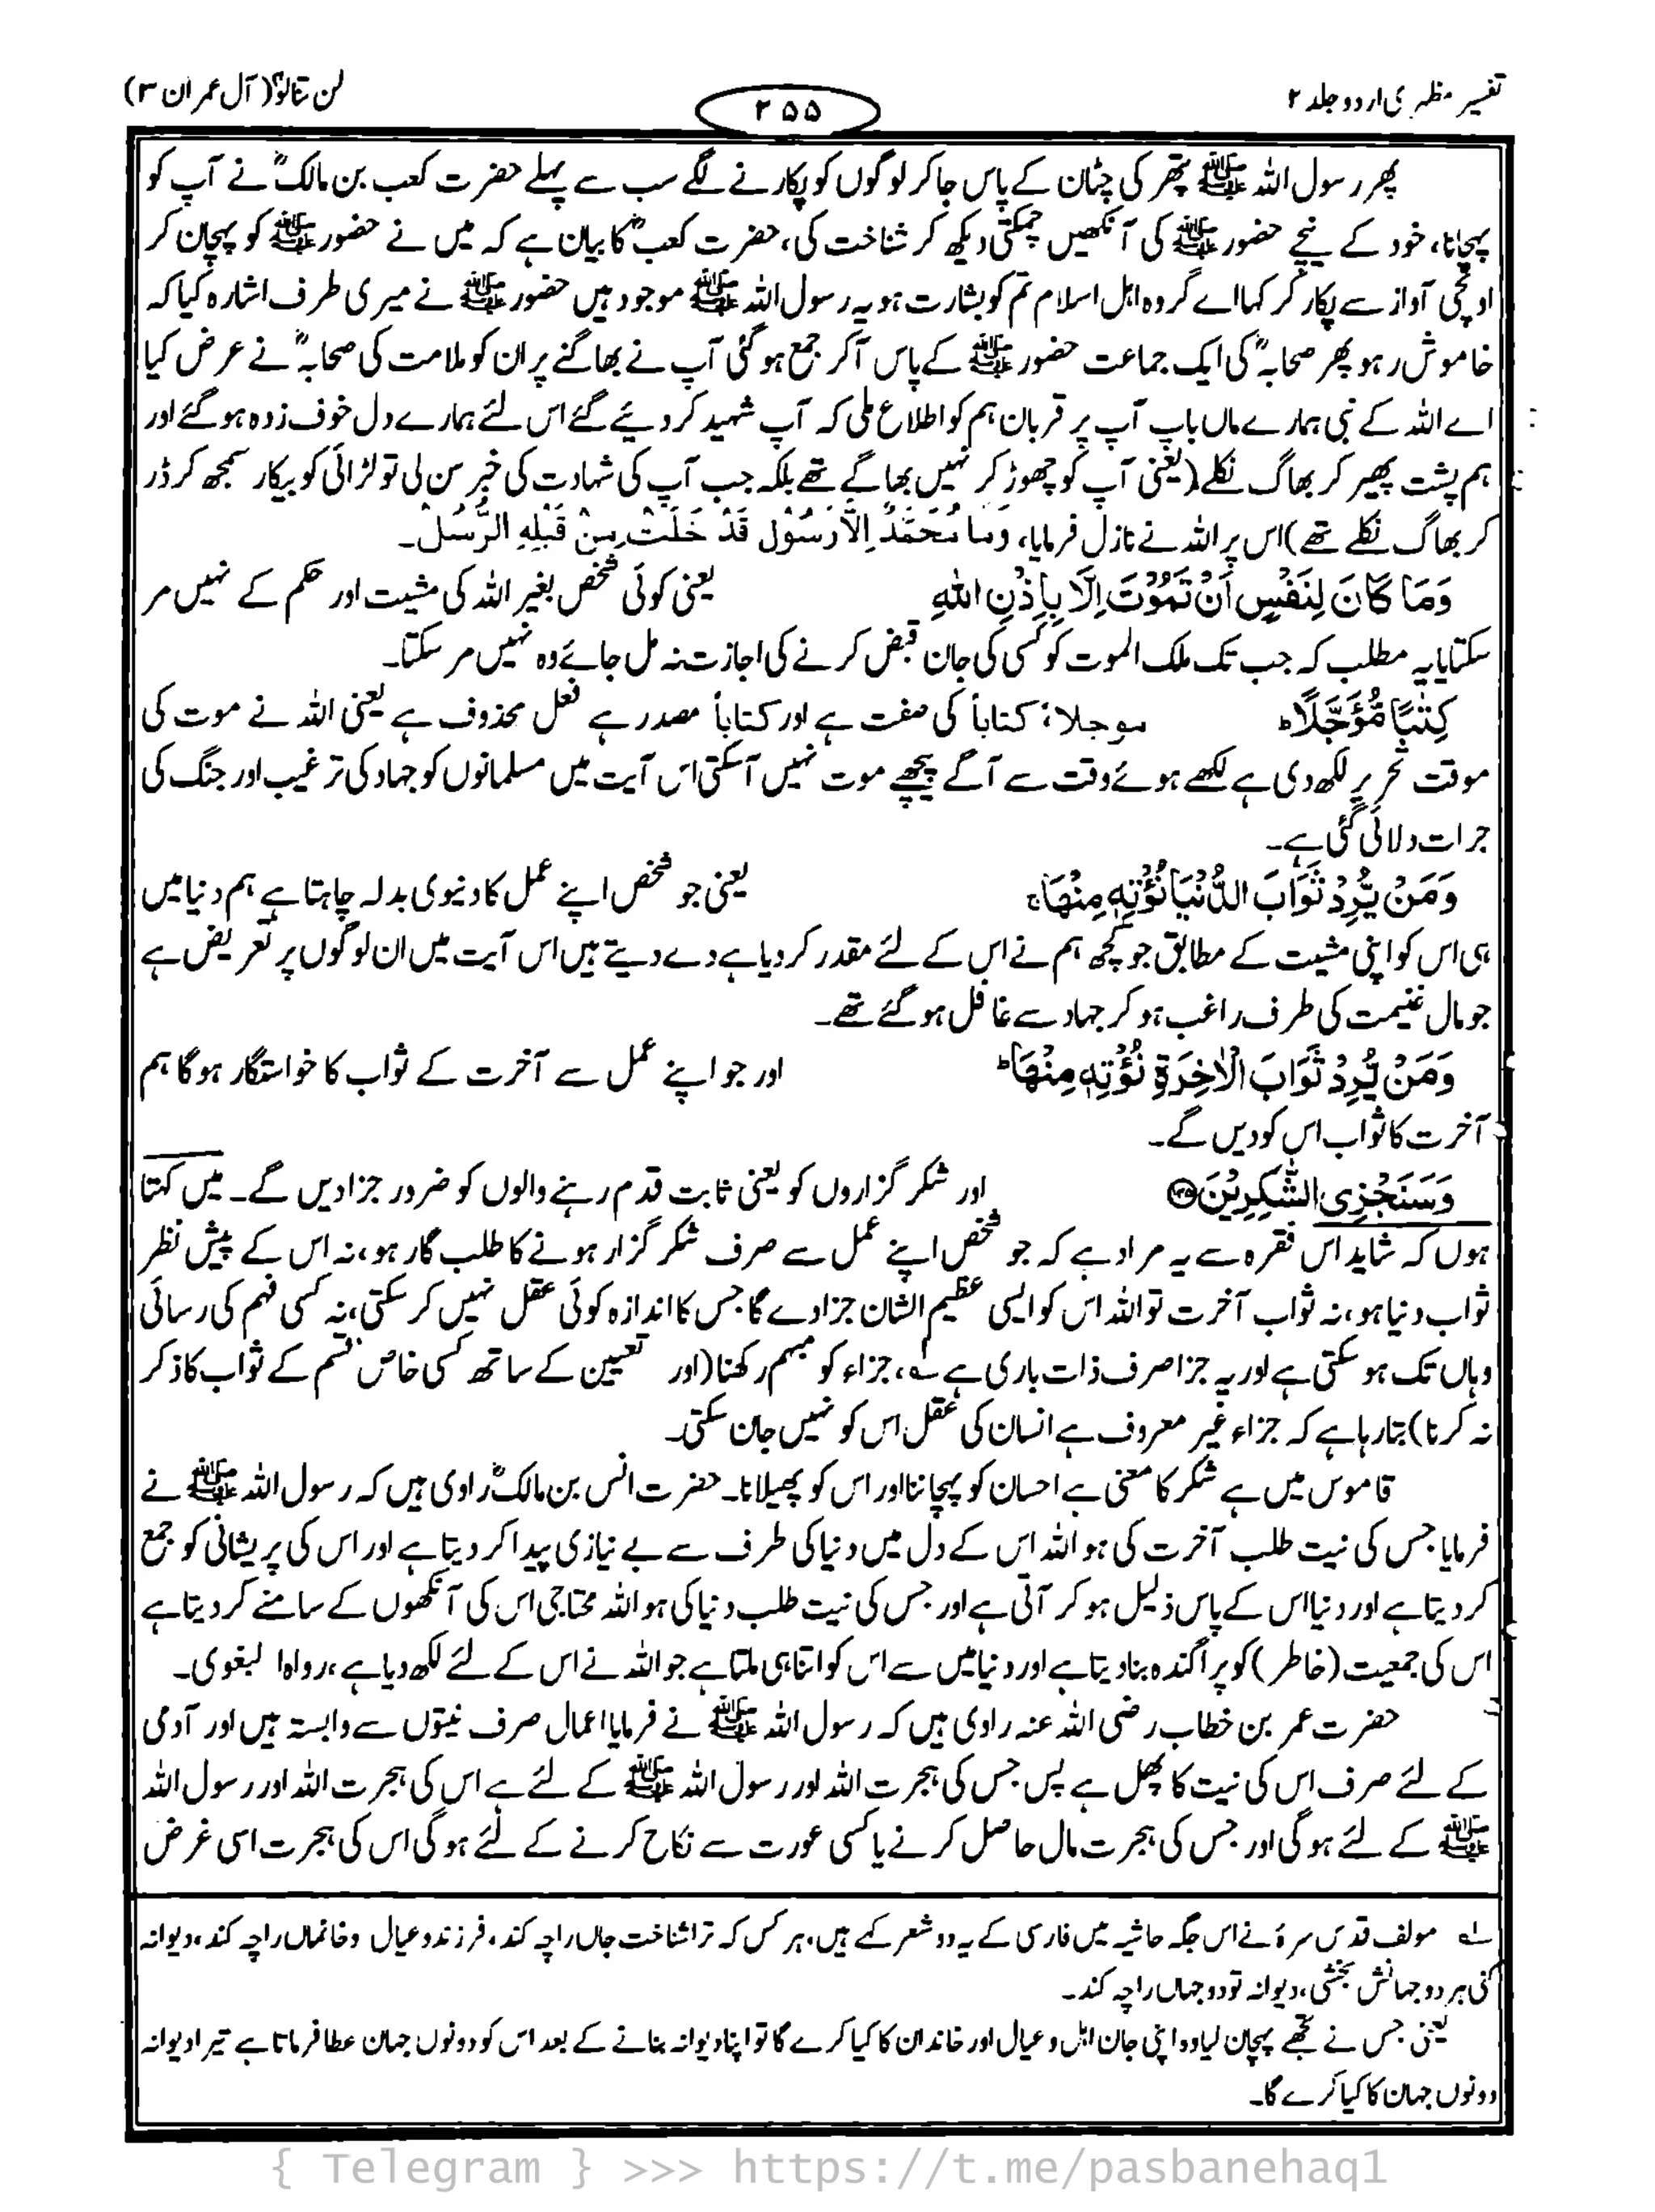 تفسیر مظہری اردو جلد ۲
۲۵۵
لن تنالوا (آل عمران ۳)
پھر رسول اللہ ﷺ پتھر کی چٹان کے پاس جا کر لوگوں کو پکارنے لگے سب سے پہلے حضرت کعب بن مالکؓ نے آپ کو
پہچانا، خود کے نیچے حضور ﷺ کی آنکھیں چمکتی دیکھ کر شناخت کی، حضرت کعبؓ کا بیان ہے کہ میں نے حضور ﷺ کو پہچان کر
اونچی آواز سے پکار کر کہا اے گروہ اہل اسلام تم کو بشارت ہو یہ رسول اللہ ﷺ موجود ہیں حضور ﷺ نے میری طرف اشارہ کیا کہ
خاموش رہو پھر صحابہؓ کی ایک جماعت حضور ﷺ کے پاس آکر جمع ہو گئی آپ نے بھاگنے پر ان کو ملامت کی صحابہؓ نے عرض کیا
اے اللہ کے نبی ہمارے ماں باپ آپ پر قربان ہم کو اطلاع ملی کہ آپ شہید کر دیئے گئے اس لئے ہمارے دل خوف زدہ ہو گئے اور
ہم پشت پھیر کر بھاگ نکلے (یعنی آپ کو چھوڑ کر نہیں بھاگے تھے بلکہ جب آپ کی شہادت کی خبر سن لی تو لڑائی کو بیکار سمجھ کر ڈر
کر بھاگ نکلے تھے) اس پر اللہ نے نازل فرمایا، وَمَا مُحَمَّدٌ اِلَّا رَسُوْل قَدْ خَلَتْ مِنْ قَبْلِهِ الرُّسُلْ۔
وَمَا كَانَ لِنَفْسٍ اَنْ تَمُوْتَ اِلَّا بِاِذْنِ اللهِ یعنی کوئی شخص بغیر اللہ کی مشیت اور حکم کے نہیں مر
سکتا یا یہ مطلب کہ جب تک ملک الموت کو کسی کی جان قبض کرنے کی اجازت نہ مل جائے وہ نہیں مر سکتا۔
كِتٰبًا مُّؤَجَّلًا ؕ موجلاً، کتاباً کی صفت ہے اور کتاباً مصدر ہے فعل محذوف ہے یعنی اللہ نے موت کی
موقت تحریر لکھ دی ہے لکھے ہوئے وقت سے آگے پیچھے موت نہیں آسکتی اس آیت میں مسلمانوں کو جہاد کی ترغیب اور جنگ کی
جرات دلائی گئی ہے۔
وَمَنْ يُّرِدْ ثَوَابَ الدُّنْيَا نُؤْتِهٖ مِنْهَا ۚ یعنی جو شخص اپنے عمل کا دنیوی بدلہ چاہتا ہے ہم دنیا میں
ہی اس کو اپنی مشیت کے مطابق جو کچھ ہم نے اس کے لئے مقدر کر دیا ہے دے دیتے ہیں اس آیت میں ان لوگوں پر تعریض ہے
جو مال غنیمت کی طرف راغب ہو کر جہاد سے غافل ہو گئے تھے۔
وَمَنْ يُّرِدْ ثَوَابَ الْاٰخِرَةِ نُؤْتِهٖ مِنْهَا ؕ اور جو اپنے عمل سے آخرت کے ثواب کا خواستگار ہوگا ہم
آخرت کا ثواب اس کو دیں گے۔
وَسَنَجْزِى الشّٰكِرِيْنَ ۝۱۴۵ اور شکر گزاروں کو یعنی ثابت قدم رہنے والوں کو ضرور جزا دیں گے۔ میں کہتا
ہوں کہ شاید اس فقرہ سے یہ مراد ہے کہ جو شخص اپنے عمل سے صرف شکر گزار ہونے کا طلب گار ہو، نہ اس کے پیش نظر
ثواب دنیا ہو، نہ ثواب آخرت تو اللہ اس کو ایسی عظیم الشان جزا دے گا جس کا اندازہ کوئی عقل نہیں کر سکتی، نہ کسی فہم کی رسائی
وہاں تک ہو سکتی ہے اور یہ جزا صرف ذات باری ہے ؎۱، جزاء کو مبہم رکھنا (اور تعیین کے ساتھ کسی خاص قسم کے ثواب کا ذکر
نہ کرنا) بتا رہا ہے کہ جزاء غیر معروف ہے انسان کی عقل اس کو نہیں جان سکتی۔
قاموس میں ہے شکر کا معنی ہے احسان کو پہچاننا اور اس کو پھیلانا۔ حضرت انس بن مالکؓ راوی ہیں کہ رسول اللہ ﷺ نے
فرمایا جس کی نیت طلب آخرت کی ہو اللہ اس کے دل میں دنیا کی طرف سے بے نیازی پیدا کر دیتا ہے اور اس کی پریشانی کو جمع
کر دیتا ہے اور دنیا اس کے پاس ذلیل ہو کر آتی ہے اور جس کی نیت طلب دنیا کی ہو اللہ محتاجی اس کی آنکھوں کے سامنے کر دیتا ہے
اس کی جمعیت (خاطر) کو پراگندہ بنا دیتا ہے اور دنیا میں سے اس کو اتنا ہی ملتا ہے جو اللہ نے اس کے لئے لکھ دیا ہے، رواہ البغوی۔
حضرت عمر بن خطاب رضی اللہ عنہ راوی ہیں کہ رسول اللہ ﷺ نے فرمایا اعمال صرف نیتوں سے وابستہ ہیں اور آدمی
کے لئے صرف اس کی نیت کا پھل ہے پس جس کی ہجرت اللہ اور رسول اللہ ﷺ کے لئے ہے اس کی ہجرت اللہ اور رسول اللہ
ﷺ کے لئے ہوگی اور جس کی ہجرت مال حاصل کرنے یا کسی عورت سے نکاح کرنے کے لئے ہوگی اس کی ہجرت اسی غرض
؎۱ مولف قدس سرہٗ نے اس جگہ حاشیہ میں فارسی کے یہ دو شعر لکھے ہیں، ہر کس کہ ترا شناخت جاں را چہ کند، فرزند و عیال و خانماں را چہ کند، دیوانہ
کنی ہر دو جہانش بخشی، دیوانہ تو دو جہاں را چہ کند۔
یعنی جس نے تجھے پہچان لیا وہ اپنی جان اہل و عیال اور خاندان کا کیا کرے گا تو اپنا دیوانہ بنانے کے بعد اس کو دونوں جہان عطا فرماتا ہے تیرا دیوانہ
دونوں جہان کا کیا کرے گا۔
{ Telegram } >>> https://t.me/pasbanehaq1